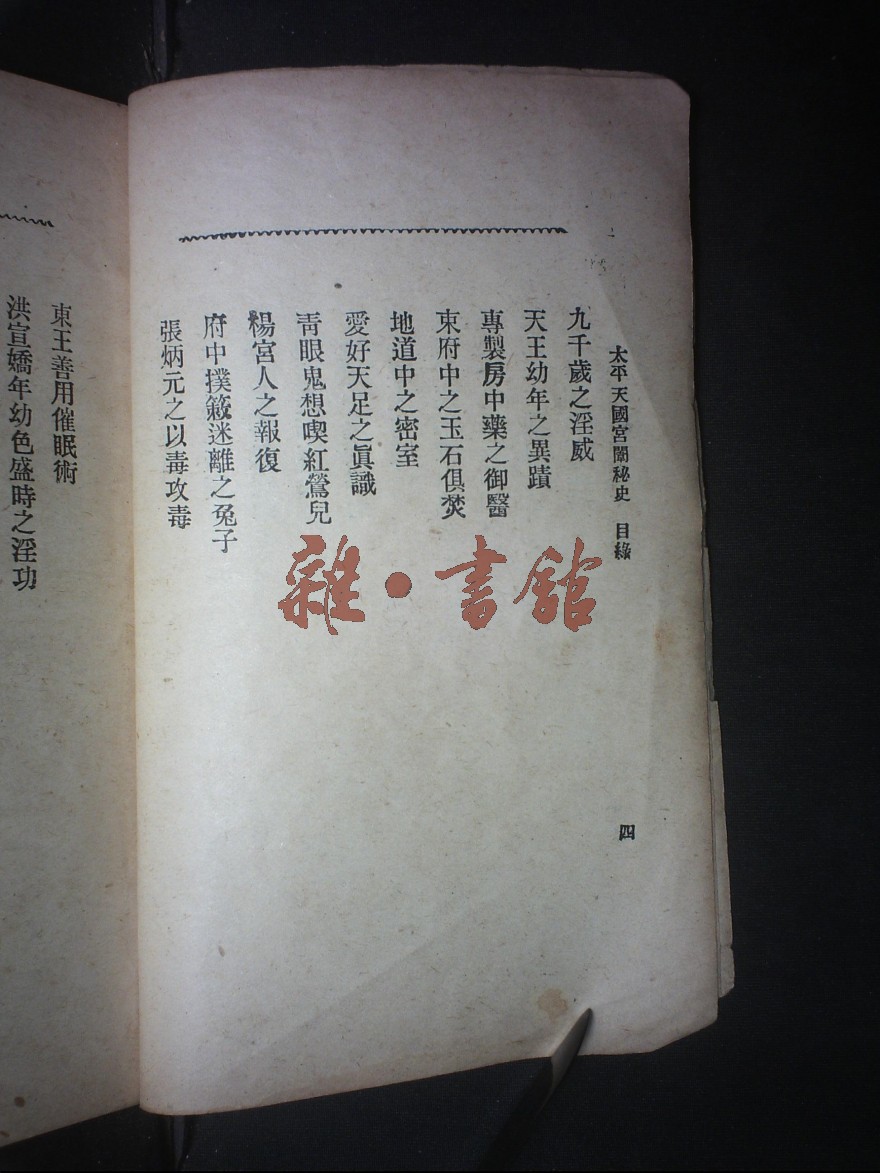 太平天國宮闈秘史　目錄
四
九千歲之淫威
天王幼年之異蹟
專製房中藥之御醫
東府中之玉石俱焚
地道中之密室
愛好天足之眞識
靑眼鬼想喫紅鶯兒
楊宮人之報復
府中撲簌迷離之兔子
張炳元之以毒攻毒
東王善用催眠術
洪宣嬌年幼色盛時之淫功
雜·書館